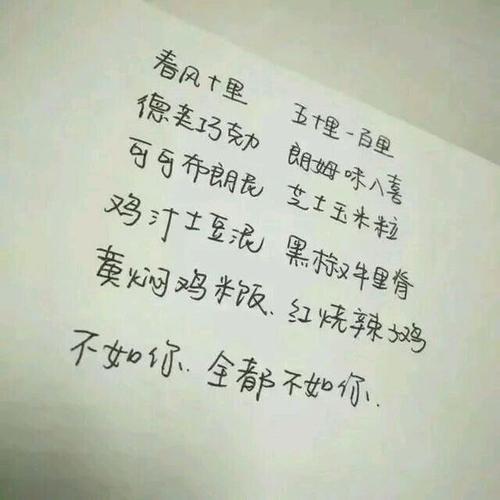 春风十里 五十里一百里
德芙巧克力 朗姆味八喜
可可布朗尼 芝士玉米粒
鸡汁土豆泥 黑椒牛里脊
黄焖鸡米饭、红烧辣子鸡
不如你、全都不如你.